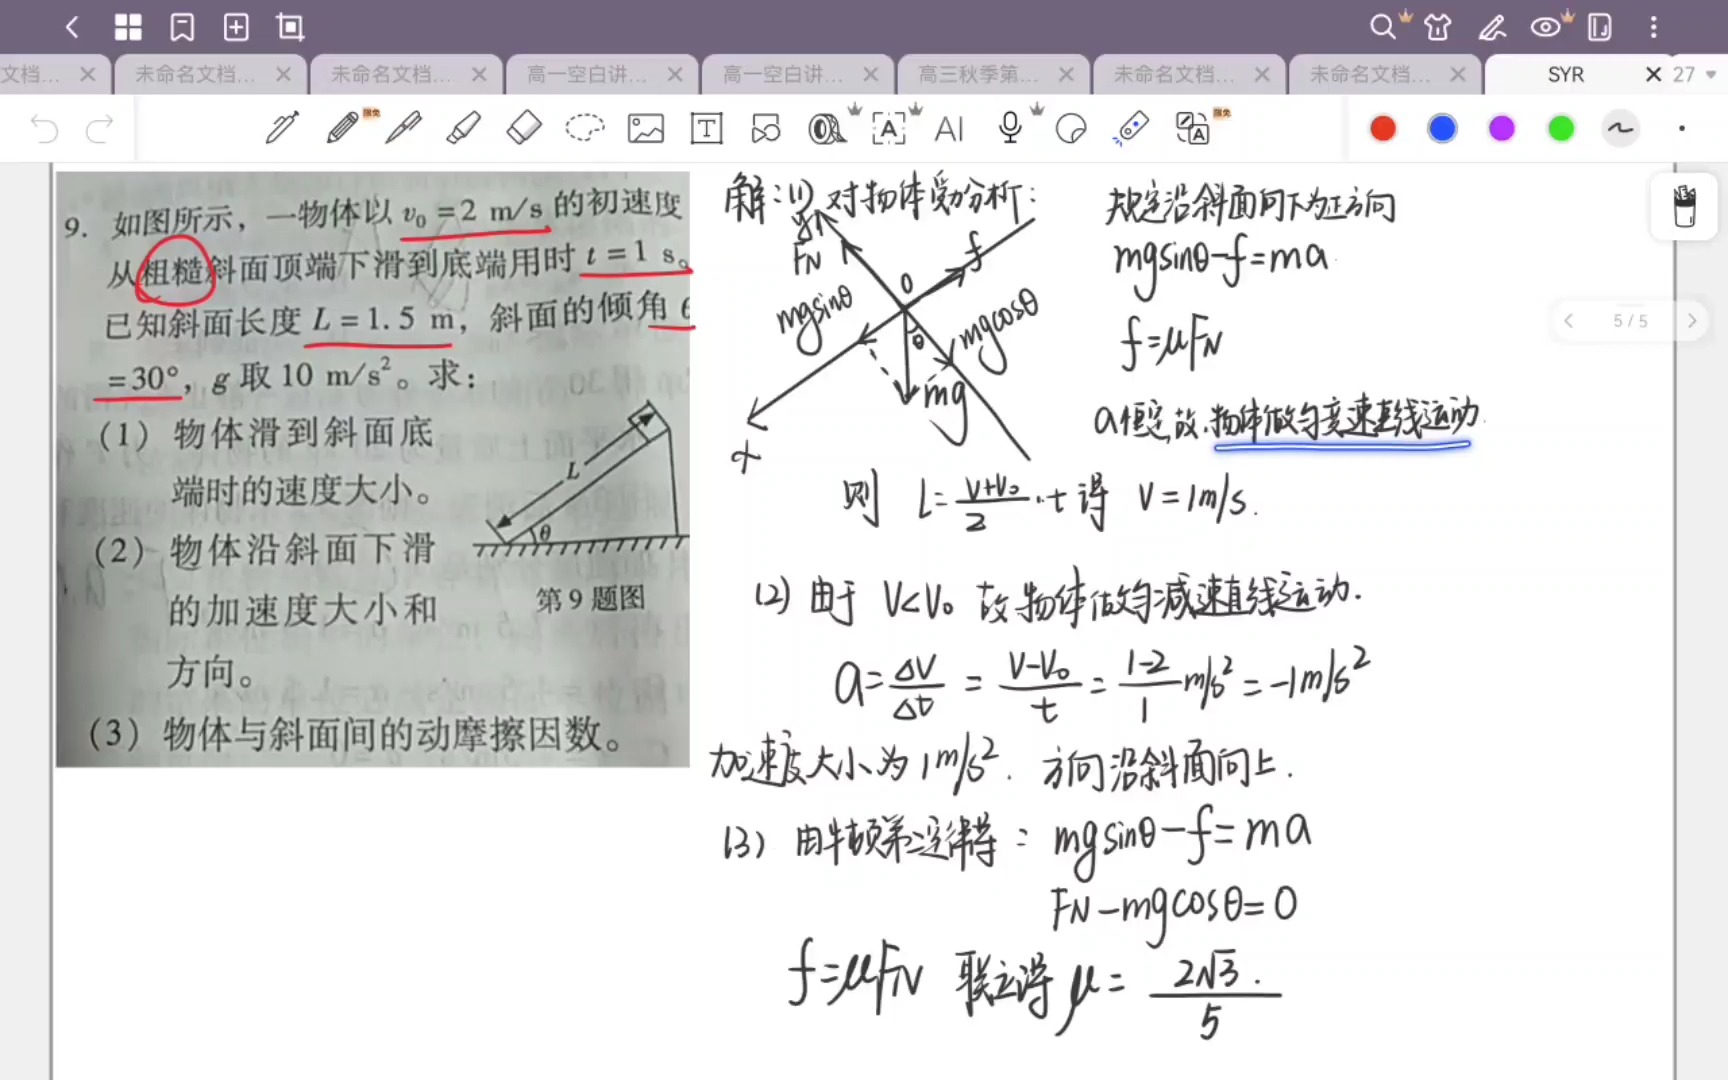 文档...
未命名文档...
未命名文档...
高一空白讲...
高一空白讲...
高三秋季第...
未命名文档...
未命名文档...
SYR
27
限免
T
A
AI
A
限免
5/5
9. 如图所示，一物体以 v₀=2 m/s 的初速度
从粗糙斜面顶端下滑到底端用时 t=1 s。
已知斜面长度 L=1.5 m，斜面的倾角 θ
=30°，g 取 10 m/s²。求：
（1）物体滑到斜面底
端时的速度大小。
（2）物体沿斜面下滑
的加速度大小和
方向。
（3）物体与斜面间的动摩擦因数。
L
θ
第9题图
解:(1) 对物体受力分析:
y
FN
f
0
mgsinθ
mgcosθ
θ
mg
x
规定沿斜面向下为正方向
mgsinθ-f=ma
f=μFN
a恒定故.物体做匀变速直线运动
则 L=(V+V₀)/2·t 得 V=1m/s.
(2) 由于 V<V₀ 故物体做匀减速直线运动.
a=ΔV/Δt=(V-V₀)/t=(1-2)/1 m/s²=-1m/s²
加速度大小为1m/s². 方向沿斜面向上.
(3) 由牛顿第二定律得: mgsinθ-f=ma
FN-mgcosθ=0
f=μFN 联立得 μ=2√3/5.